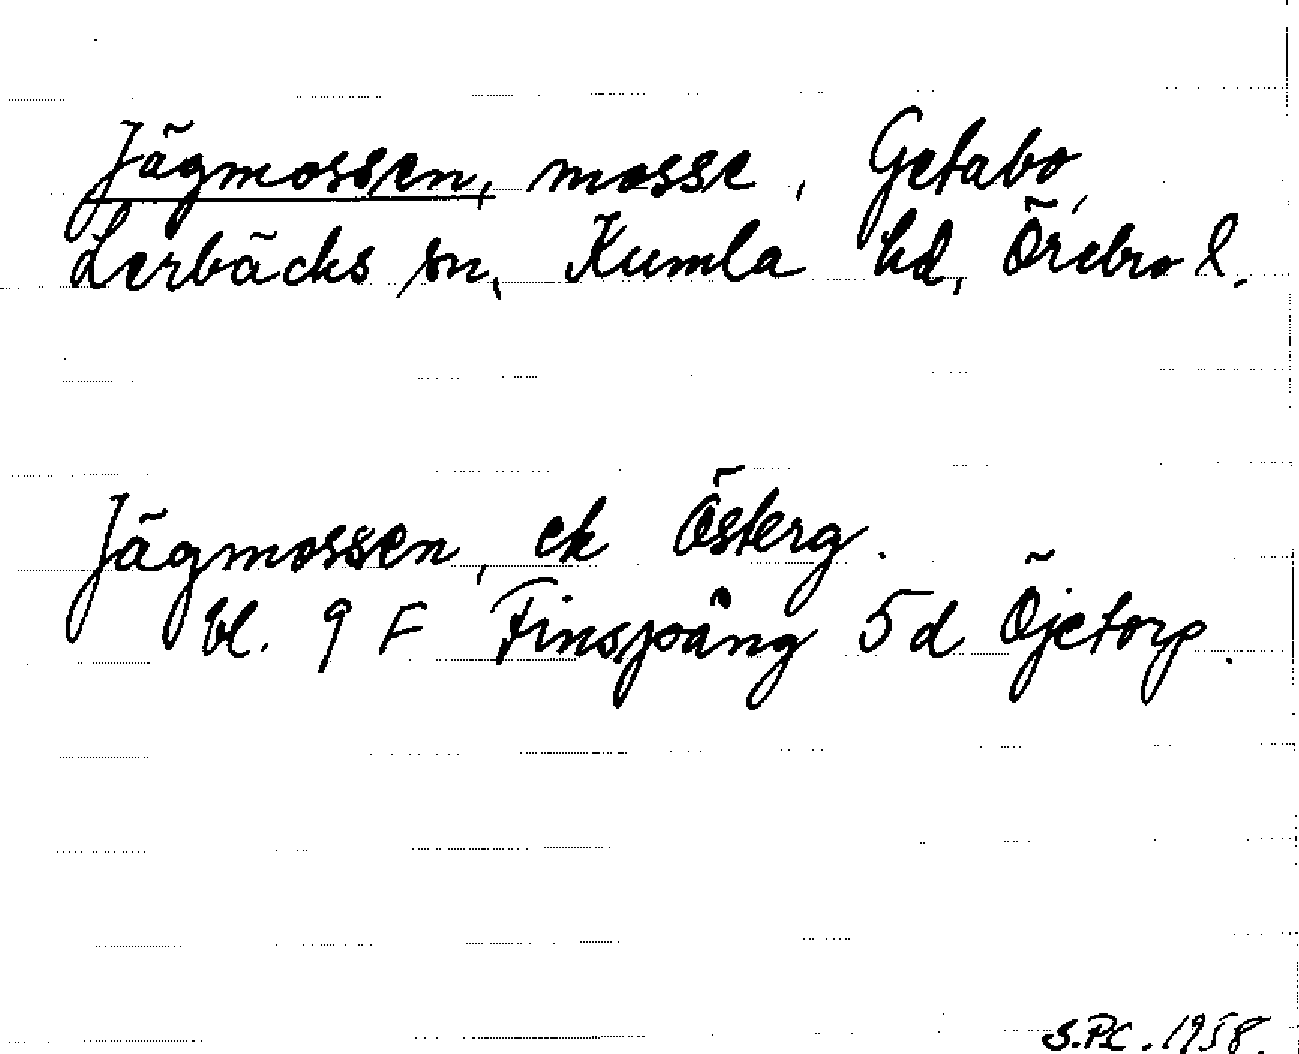 Jägmossen, mosse, Getabo,
Lerbäcks sn, Kumla hd, Örebro l.
Jägmossen, ek Österg.
bl. 9 F Finspång 5d Öjetorp.
S.P.L. 1958.